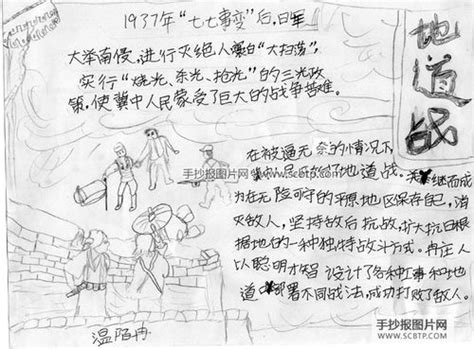 1937年“七七事变”后,日军
大举南侵,进行灭绝人寰的“大扫荡”,
实行“烧光、杀光、抢光”的三光政
策,使冀中人民蒙受了巨大的战争苦难。
地道战
在被逼无奈的情况下,
冀中人民开始了地道战。继而成
为在无险可守的平原地区保存自己,消
灭敌人,坚持敌后抗战,扩大抗日根
据地的一种独特战斗方式。冉庄人
以聪明才智设计了各种工事和地
道部署不同战法,成功打败了敌人。
温陌冉
手抄报图片网 WWW.SCBTP.COM
手抄报图片网
WWW.SCBTP.COM